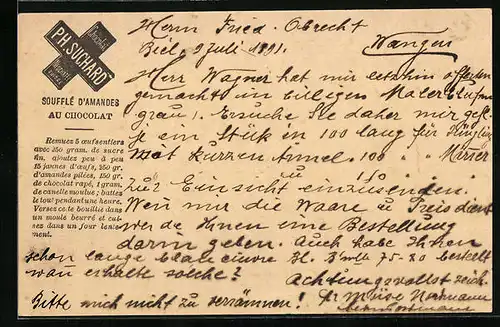 PH. SUCHARD
SOUFFLÉ D'AMANDES
AU CHOCOLAT
Remuez 5 œufs entiers
avec 250 gram. de sucre
fin, ajoutez peu à peu
15 jaunes d'œufs, 250 gr.
d'amandes pilées, 150 gr.
de chocolat rapé, 1 gram.
de canelle moulue; battez
le tout pendant une heure.
Versez ce te bouillie dans
un moule beurré et cui-
sez dans un four lente-
ment.
Herrn Fried. Obrecht
Biel, 9 Juli 1891.
Wangen
Herr Wagner hat mir letzthin offerten
gemacht in billigen Maler
grau! Ersuche Sie daher mir gefl.
je ein Stück in 100 lang für
mit kurzen 100 " "
zu
zur Einsicht einzusenden.
Wen mir die Waare u Preis dient
werde Ihnen eine Bestellung
darin geben. Auch habe Ihnen
schon lange 75-80 bestellt
wan erhalte solche?
Achtungsvollst zeich.
Bitte mich nicht zu versäumen!